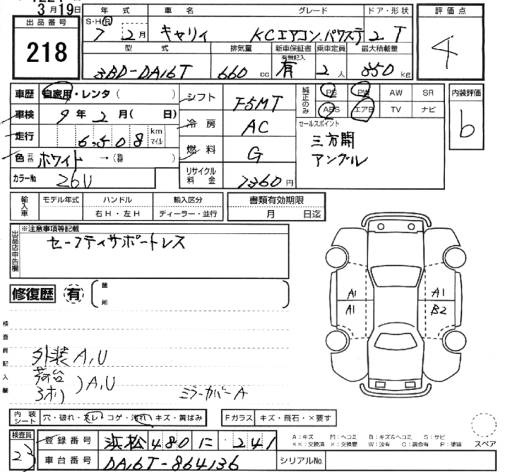 3月19日
出品番号 年式 車名 グレード ドア・形状 評価点
218
S・H・R 7年2月 キャリィ KCエアコン.パワステ 2 T
4
型式 排気量 新車保証書 乗車定員 最大積載量
有無記入
3BD-DA16T 660cc 有 2人 350kg
車歴 自家用・レンタ( )
シフト F5MT
純正のみ PS PW AW SR
ABS エアB TV ナビ
内装評価
b
車検 9年2月( 日)
冷房 AC
セールスポイント
三方開
アングル
走行 6,508 km マイル
燃料 G
色 ホワイト →( )
リサイクル料金 7360円
カラーNo 26U
輸入車 モデル年式 ハンドル 輸入区分 書類有効期限
右H・左H ディーラー・並行 月 日迄
出品店申告欄 ※注意事項等記載
セーフティサポートレス
修復歴 有 箇所
A1 A1
A1 B2
検査員記入欄
外装A,U
荷台
3オリ )A,U
ミラーカバーA
内装シート 穴・破れ・スレ・コゲ・汚れ・キズ・黄ばみ Fガラス キズ・飛石・×要す
スペア
検査員
23
登録番号 浜松480に 241
車台番号 DA16T-864136 シリアルNo
A:キズ M:ヘコミ B:キズ&ヘコミ S:サビ